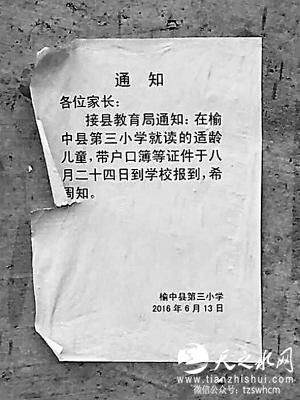 通 知
各位家长：
接县教育局通知：在榆
中县第三小学就读的适龄
儿童，带户口簿等证件于八
月二十四日到学校报到，希
周知。
榆中县第三小学
2016年6月13日
天之水网
www.tianzhishui.com
微信公众号：tzswhcm